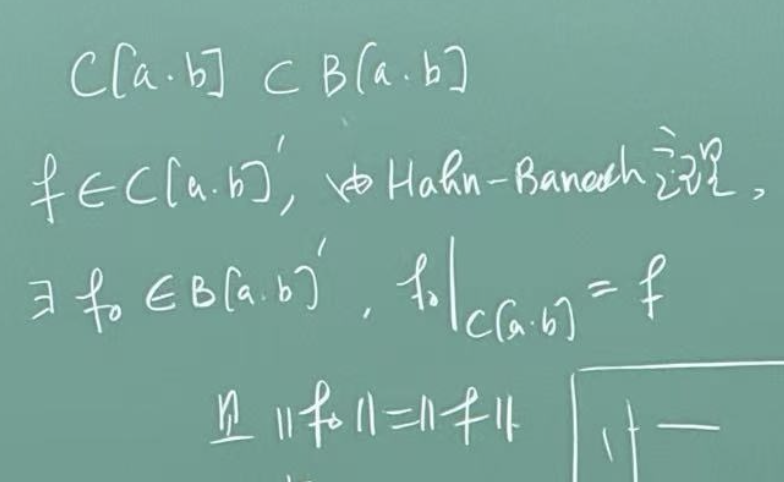 C[a.b] ⊂ B[a.b]
f ∈ C[a.b]', 由 Hahn-Banach 定理,
∃ f₀ ∈ B[a.b]', f₀|_{C[a.b]} = f
且 ||f₀|| = ||f||